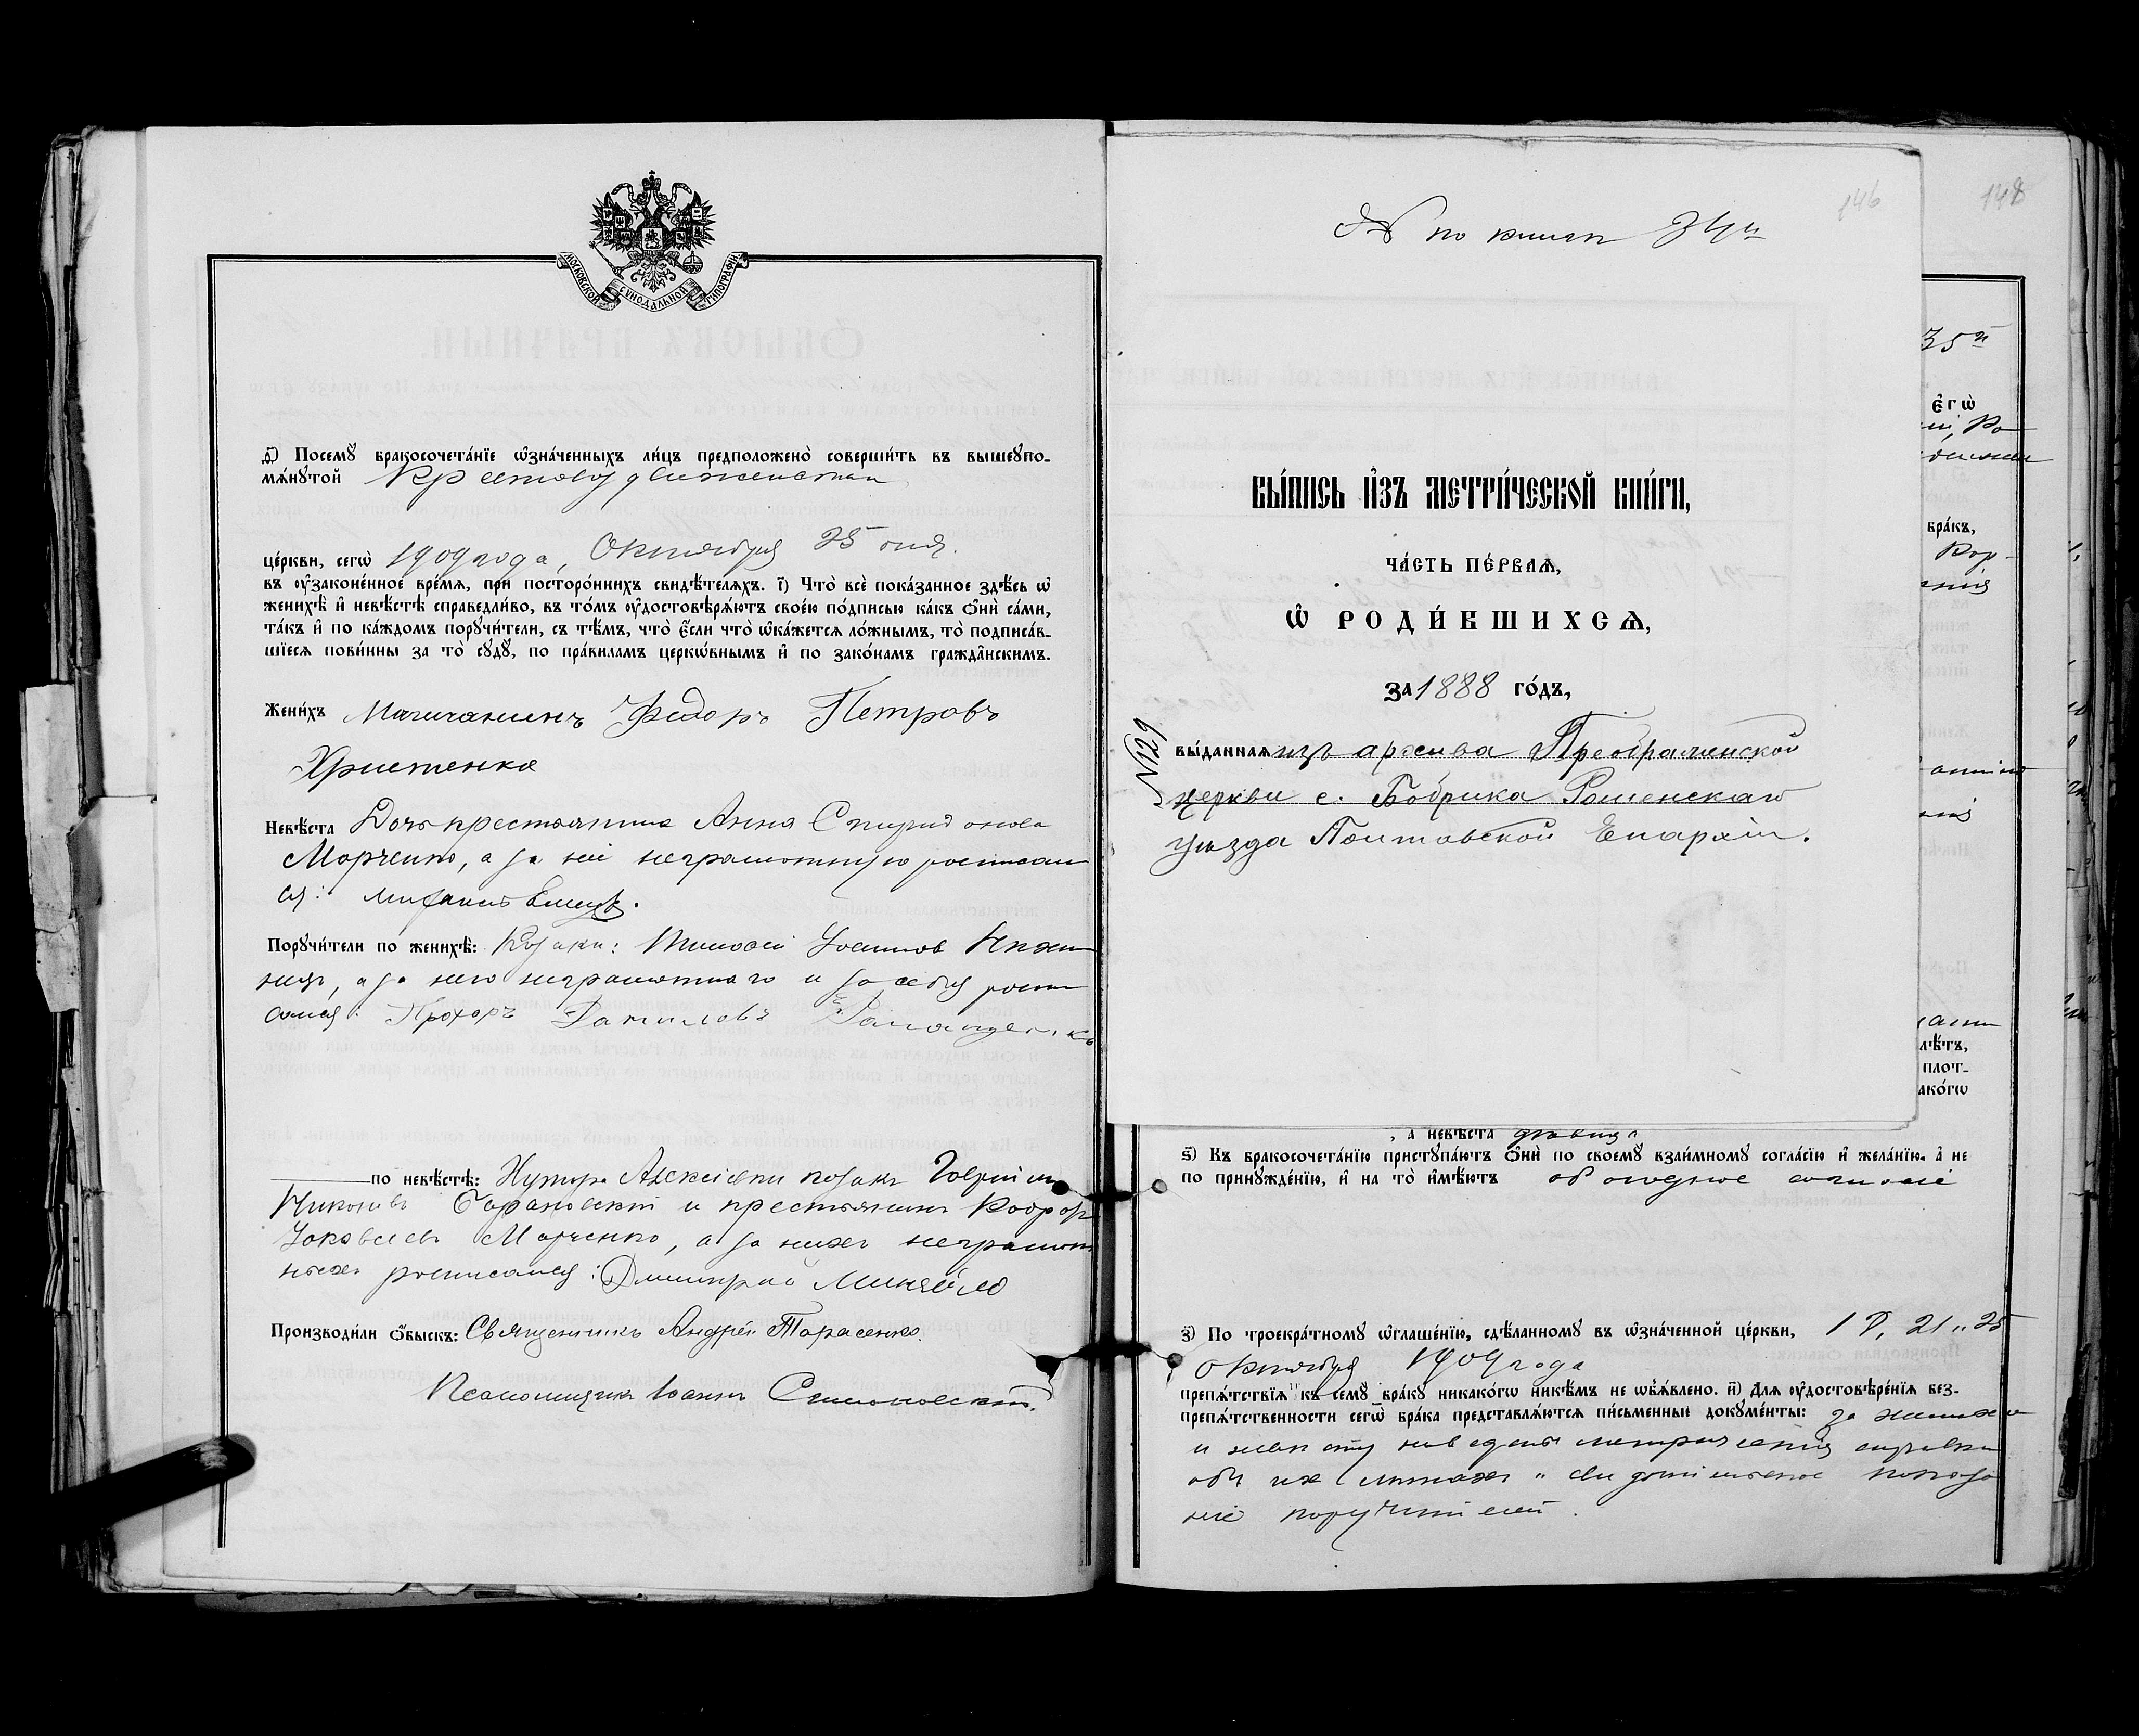 МОСКОВСКОЙ СѴНОДАЛЬНОЙ ТИПОГРАФІИ
д҃) Посемꙋ бракосочета́нїе ѡ҆зна́ченныхъ ли́цъ предположено̀ соверши́ть въ вышеꙋпо-
мѧ́нꙋтой Крестовоздвиженской
це́ркви, сегѡ̀ 1909 года, Октября 25 дня.
въ ᲂу҆законе́нное вре́мѧ, при посторо́ннихъ свидѣ́телѧхъ. і҃) Что̀ всѐ пока́занное здѣ́сь ѡ҆
женихѣ̀ и҆ невѣ́стѣ справедли́во, въ то́мъ ᲂу҆достовѣрѧ́ютъ свое́ю по́дписью ка́къ ѻ҆нѝ са́ми,
та́къ и҆ по ка́ждомъ порꙋчи́тели, съ тѣ́мъ, что̀ є҆́сли что̀ ѡ҆ка́жетсѧ ло́жнымъ, то̀ подписа́в-
шїесѧ пови́нны за то̀ сꙋдꙋ̀, по пра́виламъ церкѡ́внымъ и҆ по зако́намъ гражда́нскимъ.
Жени́хъ Федоръ Петровъ
Христенко
Невѣ́ста Дочь крестьянина Анна Спиридонова
Марченко, а за неё неграмотную росписал
ся:
Порꙋчи́тели по женихѣ̀: Козаки: Тимофей
а за него неграмотного и за себя роспи
сался: Прохоръ Даниловъ
по невѣ́стѣ: Хутора Алексеевки козакъ
Барановский и крестьянинъ
Яковлевъ Марченко, а за нихъ неграмот
ныхъ росписался: Дмитрий Миняйло
Производи́ли ѻ҆́быскъ: Священникъ Андрей Тарасенко.
Псаломщикъ Іоаннъ
146
148
№ по книгѣ
ВЫ́ПИСЬ И҆ЗЪ МЕТРИ́ЧЕСКОЙ КНИ́ГИ,
ЧА́СТЬ ПЕ́РВАѦ,
Ѡ҆ РОДИ́ВШИХСѦ,
ЗА 1888 ГО́ДЪ,
№129
вы́даннаѧ изъ архива Преображенской
церкви с. Бобрика Роменскаго
уѣзда Полтавской Епархіи.
35
є҆гѡ̀
бра́къ,
лѣ́тъ,
плот-
ако́гѡ
, а невѣ́ста девица
ѕ҃) Къ бракосочета́нїю пристꙋпа́ютъ ѻ҆нѝ по своемꙋ̀ взаи́мномꙋ согла́сїю и҆ жела́нїю, а҆ не
по принꙋжде́нїю, и҆ на то̀ и҆мѣ́ютъ обоюдное согласіе
з҃) По троекра́тномꙋ ѡ҆глаше́нїю, сдѣ́ланномꙋ въ ѡ҆зна́ченной це́ркви, 18, 21 и 25
октября 1909 года
препѧ́тствїѧ къ семꙋ̀ бра́кꙋ никако́гѡ никѣ́мъ не ѡ҆б̾ѧ́влено. и҃) Длѧ ᲂу҆достовѣре́нїѧ без-
препѧ́тственности сегѡ̀ бра́ка представлѧ́ютсѧ пи́сьменные докꙋме́нты: за жениха
и невесту наведены метрическія справки
объ их летахъ и показа
ніе поручителей.